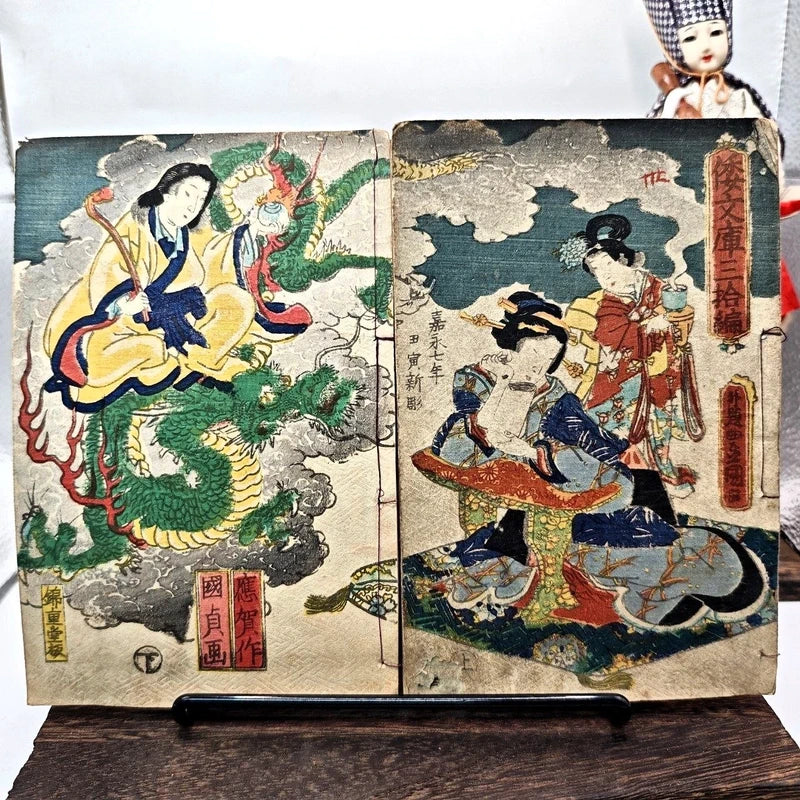 倭文庫三拾編
嘉永七年
甲寅新彫
上
應賀作
國貞画
錦重堂板
下